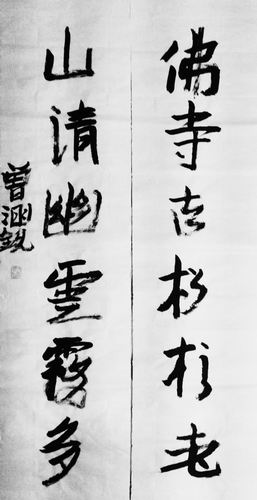 佛寺古松柏老
山清幽雲霧多
曾涵銳